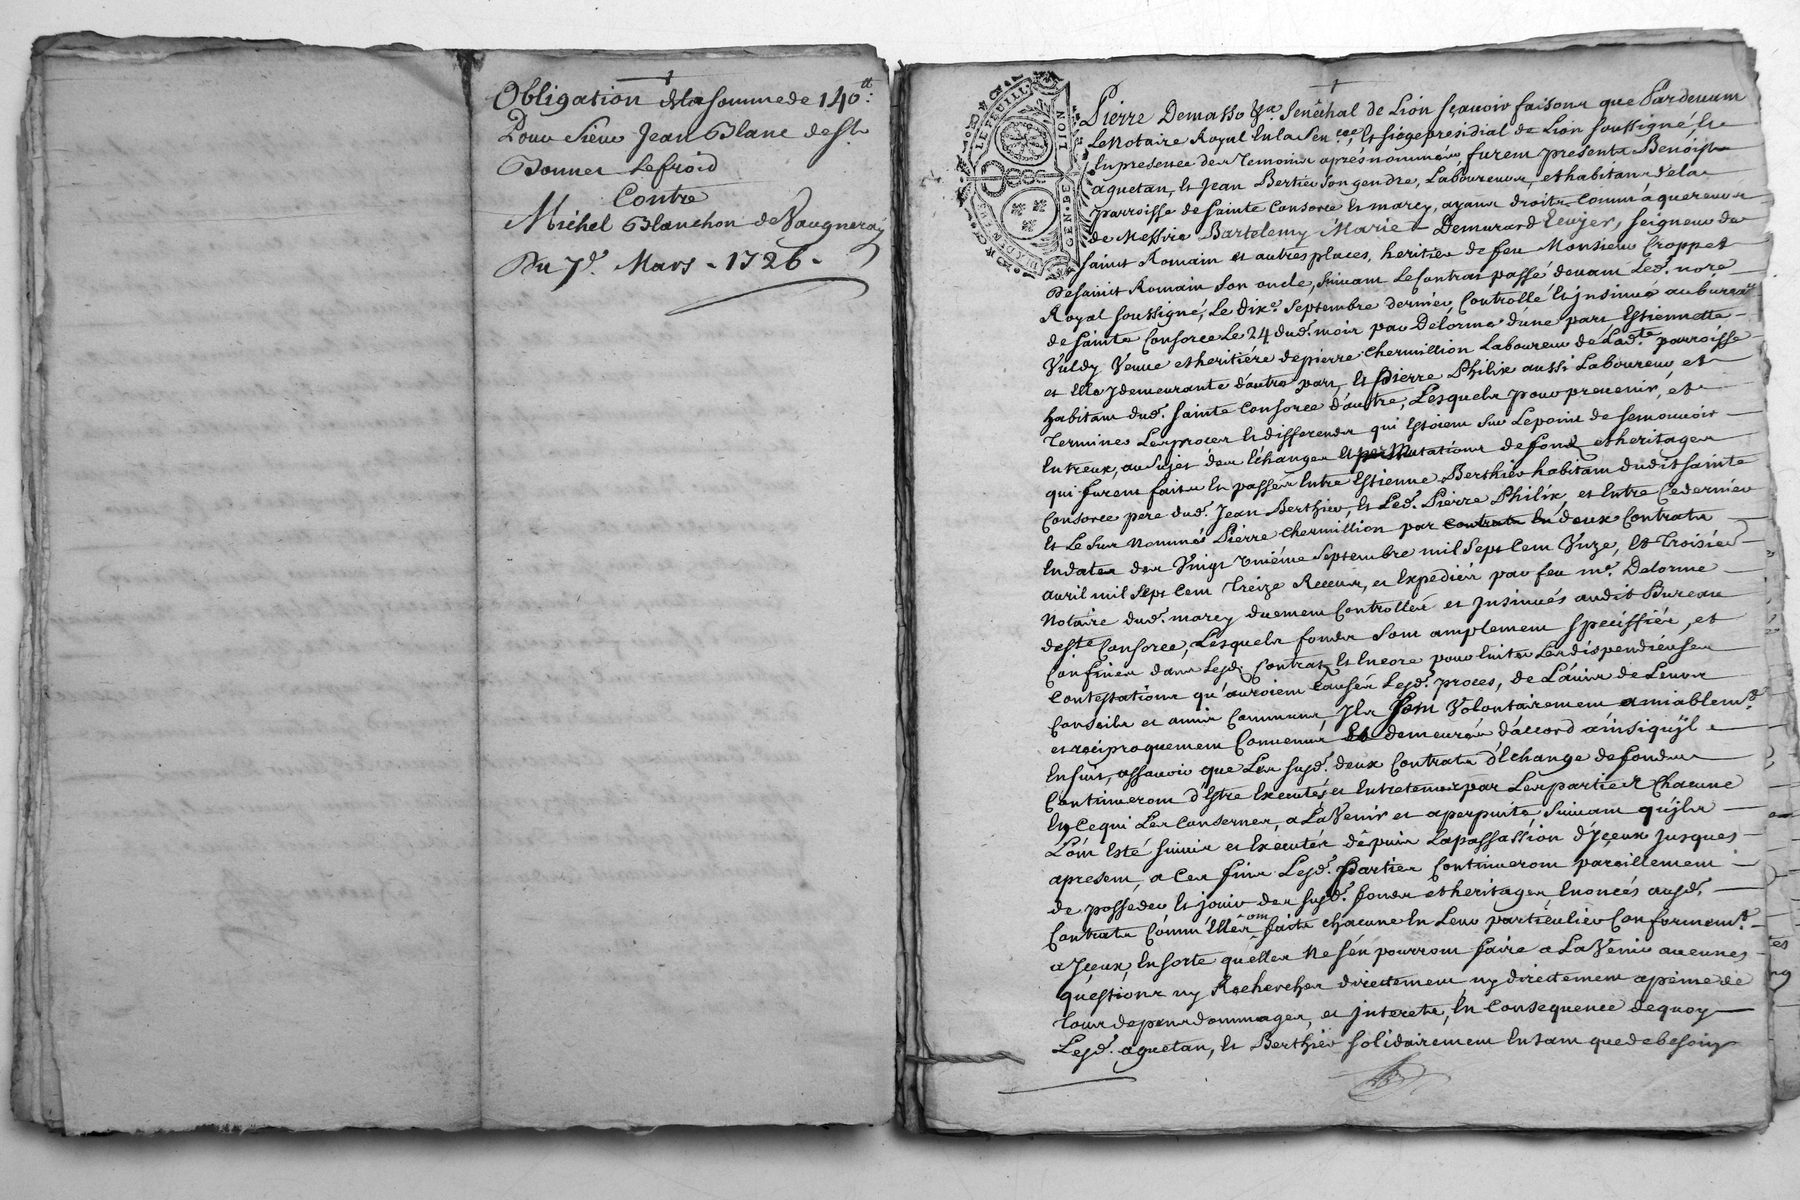 Obligation de la somme de 140 ₶.
Pour Sieur Jean Blanc de St
Bonnet Lefroid
Contre
Michel Blanchon de Vaugneray
Du 7e. Mars - 1726 -
LE FEUILL
LION
GEN. DE
Pierre Demasso &a. Senéchal de Lion sçavoir faisons que Pardevant
Le Notaire Royal En la Sencée, Et siege presidial de Lion soussigné, Et
En presence des Temoins aprés nommés, furent presents Benoist
aguetan, Et Jean Bertier son gendre, Laboureurs, et habitans de la
parroisse de Sainte Consorce Et marcy, ayans droits comm'áquereurs
de Messire Bartelemy Marie Demurard Ecuyer, seigneur de
saint Romain et autres places, heritier de feu Monsieur Croppet
De saint Romain son oncle, suivant Le Contrat passé devant Led. nore
Royal soussigné, Le dixe. Septembre dernier, Controllé Et insinué au bureau
de Sainte Consorce Le 24 dud. mois par Delorme d'une part Estiennette
Vuldy Veuve et heritiére de pierre Chermillion Laboureur de Lad.te parroisse
et Elle y demeurante d'autre part, Et Pierre Philix aussi Laboureur et
habitant dud. Sainte Consorce d'autre, Lesquels pour prevenir, et
Terminer Les proces Et differends qui Estoient sur Le point de se mouvoir
Entreux, au sujet des Echanges Et permutations de fonds et heritages
qui furent faits Et passés Entre Estienne Berthier habitant dudit Sainte
Consorce pere dud. Jean Berthier, Et Led. Pierre Philix, et Entre Ce dernier
Et Le sus nommé Pierre Chermillion par contrats En deux Contrats
En dates des Vingt uniéme Septembre mil sept Cent Unze, Et Troisieé
avril mil sept Cent Treize Receus, et Expediés par feu me. Delorme
Notaire dud. marcy duement Controllés et Insinués audit Bureau
de ste Consorce, Lesquels fonds sont amplement speciffiés, et
Confinés dans Lesd. Contrats, Et Encore pour Eviter Les dispendiéuses
Contestations qu'auroient Causés Lesd. proces, de L'avis de Leurs
Conseils et amis Communs, Ils sont Volontairement amiablemt.
et reciproquement Convenus Et demeurés d'accord ainsi qu'il
Ensuit, assavoir que Les susd. deux Contrats d'Echange de fonds
Continueront d'Estre Executés et Entretenus par Les parties Chacune
En Ce qui Les Conserne, a L'avenir et a perpuité suivant qu'ils
L'ont Esté suivis et Executés dépuis La passassion d'Iceux Jusques
apresent, a Ces fins Lesd. Parties Continueront pareillement
de posseder Et jouir des susd. fonds et heritages Enoncés ausd.
Contrats Comm'Elles ont faits chacune En Leur particulier Conformemt.
a Iceux, En sorte qu'elles ne s'en pourront faire a L'avenir aucunes
questions ny Rechercher directement ny directement apeine de
Tous depens dommages, et Interets, En Consequence de quoy
Lesd. aguetan, Et Berthier solidairement En tant que de besoin